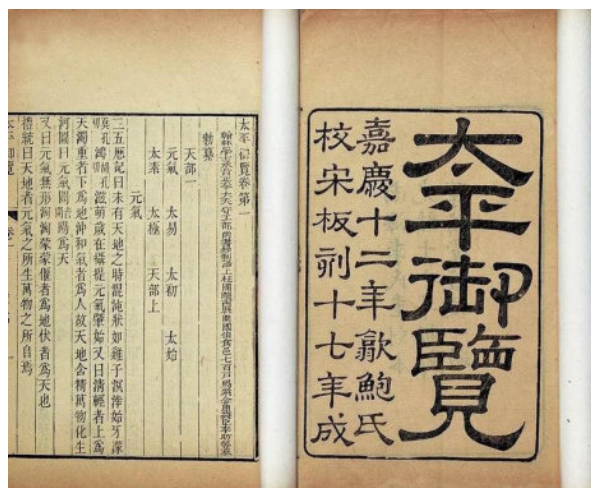 太平御覽
嘉慶十二年歙鮑氏
校宋板刻十七年成
太平御覽卷第一
勑纂
天部一
元氣 太易 太初 太始
太素 太極 天部上
元氣
三五歷記曰未有天地之時混沌狀如雞子溟涬始牙濛
鴻滋萌歲在攝提元氣肇始又曰清輕者上爲
天濁重者下爲地沖和氣者爲人故天地含精萬物化生
河圖曰元氣闓陽爲天
又曰元氣無形洶洶蒙蒙偃者爲地伏者爲天也
禮統曰天地者元氣之所生萬物之所自焉